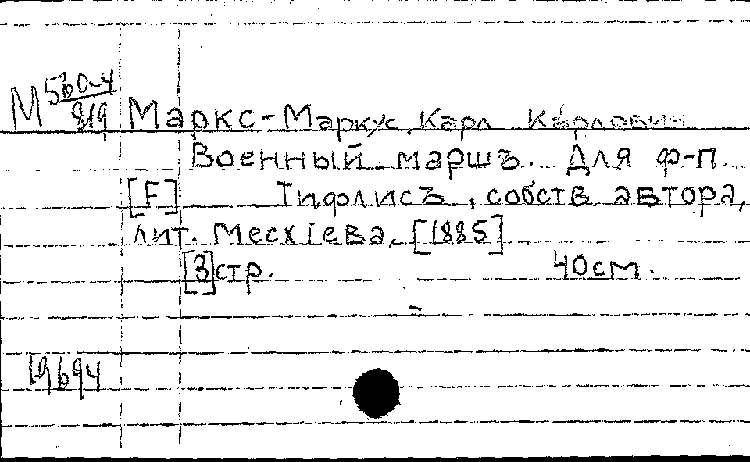 М 560-4/819 Маркс-Маркус, Карл Карлович
Военный маршъ. Для ф-п.
[F] Тифлисъ, собств. автора,
лит. Месхіева, [1885]
[3] стр. 40 см.
19694